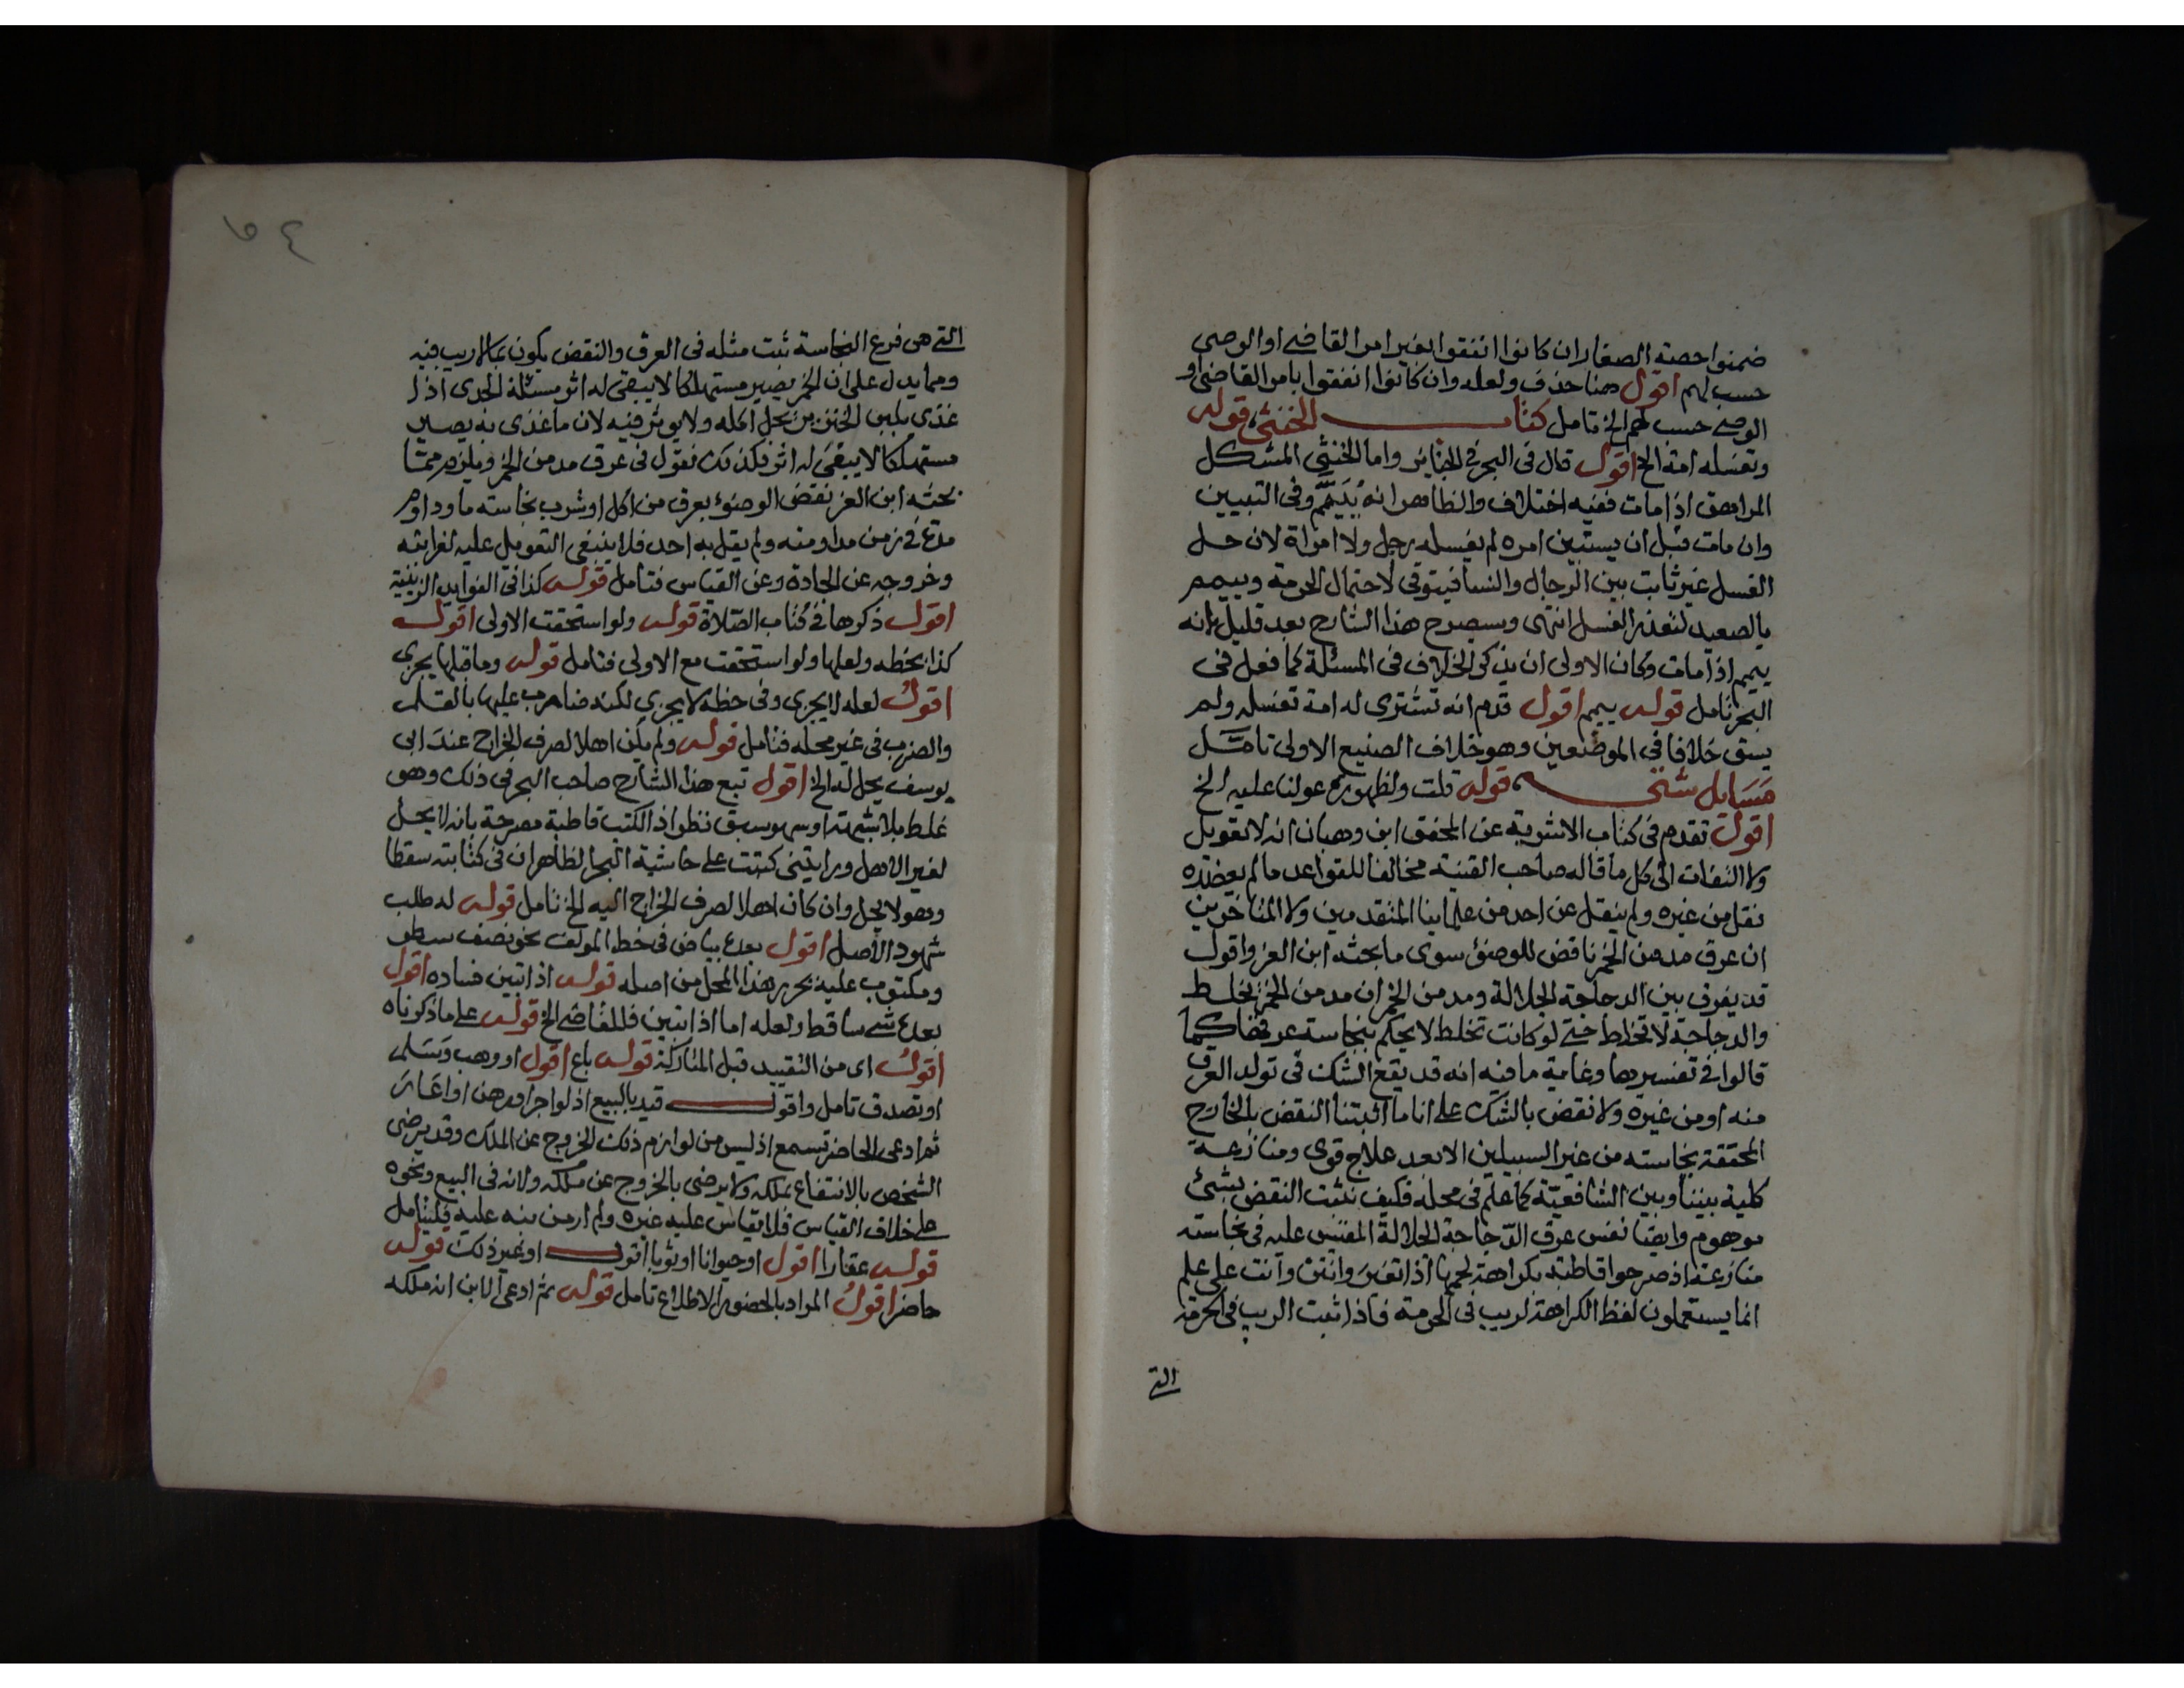 ضمنوا حصة الصغار ان كانوا انفقوا بغير امر القاضي او الوصي
حسب لهم اقول هنا حذف ولعله وان كانوا انفقوا بامر القاضي او
الوصي حسب لهم الخ تامل كتاب الخنثى قوله
وتغسله امة الخ اقول قال في البحر في الجنائز واما الخنثى المشكل
المراهق اذا مات ففيه اختلاف والظاهر انه ييمم وفي التبيين
وان مات قبل ان يستبين امره لم يغسله رجل ولا امراة لان حل
الغسل غير ثابت بين الرجال والنسا فيتوقى لاحتمال الحرمة وييمم
بالصعيد لتعذر الغسل انتهى وسيصرح هذا الشارح بعد قليل بانه
ييمم اذا مات وكان الاولى ان يذكر الخلاف في المسئلة كما فعل في
البحر تامل قوله ييمم اقول قدم انه تشترى له امة تغسله ولم
يسق خلافا في الموضعين وهو خلاف الصنيع الاولى تامل
مسايل شتى قوله قلت ولظهوره عولنا عليه الخ
اقول تقدم في كتاب الاشربة عن المحقق ابن وهبان انه لا تعويل
ولا التفات الى كل ما قاله صاحب القنية مخالفا للقواعد ما لم يعضده
نقل من غيره ولم ينقل عن احد من علماينا المتقدمين ولا المتاخرين
ان عرق مدمن الخمر ناقض للوضوء سوى ما بحثه ابن العز واقول
قد يفرق بين الدجاجة الجلالة ومدمن الخمر ان مدمن الخمر يخلط
والدجاجة لا تخلط حتى لو كانت تخلط لا يحكم بنجاسة عرقها كما
قالوا في تفسيرها وغاية ما فيه انه قد يقع الشك في تولد العرق
منه او من غيره ولا نقض بالشك على انا ما اثبتنا النقض بالخارج
المحققة نجاسته من غير السبيلين الا بعد علاج قوي ومنازعة
كلية بيننا وبين الشافعية كما علم في محله فكيف نثبت النقض بشئ
موهوم وايضا نفس عرق الدجاجة الجلالة المقيس عليه في نجاسته
منازعة اذ صرحوا قاطبة بكراهة لحمها اذا تغير وانتن وانت على علم
انما يستعملون لفظ الكراهة لريب في الحرمة فاذا ثبت الريب في الحرمة
التي
٦٤
التي هي فرع النجاسة ثبت مثله في العرق والنقض يكون بما لا ريب فيه
ومما يدل على ان الخمر يصير مستهلكا لا يبقى له اثر مسئلة الجدي اذا
غذى بلبن الخنزير يحل اكله ولا يوثر فيه لان ما غذى به يصير
مستهلكا لا يبقى له اثر فكذلك نقول في عرق مدمن الخمر ويلزم مما
بحثه ابن العز نقض الوضوء بعرق من اكل او شرب نجاسة ما وداوم
مدة في زمن مداومته ولم يقل به احد فلا ينبغي التعويل عليه لغرابته
وخروجه عن الجادة وعن القياس فتامل قوله كذا في الفوايد الزينية
اقول ذكرها في كتاب الصلاة قوله ولو استحقت الاولى اقول
كذا بخطه ولعلها ولو استحقت مع الاولى فتامل قوله وما قبلها يجزي
اقول لعله لا يجزي وفي خطه لا يجزي لكنه ضاهرب عليها بالقلم
والضرب في غير محله فتامل قوله ولم يكن اهلا لصرف الخراج عند ابي
يوسف يحل له الخ اقول تبع هذا الشارح صاحب البحر في ذلك وهو
غلط بلا شبهة او سهو وسبق نظر اذ الكتب قاطبة مصرحة بانه لا يحل
لغير الاهل ورايتني كتبت على حاشية البحر الظاهر ان في كتابته سقطا
وهو لا يحل وان كان اهلا لصرف الخراج اليه الخ تامل قوله له طلب
شهود الاصل اقول بعده بياض في خط المولف نحو نصف سطر
ومكتوب عليه يحرر هذا المحل من اصله قوله اذا تبين فساده اقول
بعده شي ساقط ولعله اما اذا تبين فللقاضي الخ قوله على ما ذكرناه
اقول اى من التقييد قبل المتاركة قوله باع اقول او وهب وسلم
او تصدق تامل واقول قيد بالبيع اذ لو اجر او رهن او اعار
ثم ادعى الحاضر تسمع اذ ليس من لوازم ذلك الخروج عن الملك وقد يرضى
الشخص بالانتفاع بملكه ولا يرضى بالخروج عن ملكه ولانه في البيع ونحوه
على خلاف القياس فلا يقاس عليه غيره ولم ار من نبه عليه فليتامل
قوله عقارا اقول او حيوانا او ثوبا اقول او غير ذلك قوله
حاضر اقول المراد بالحضور الاطلاع تامل قوله ثم ادعى الابن انه ملكه